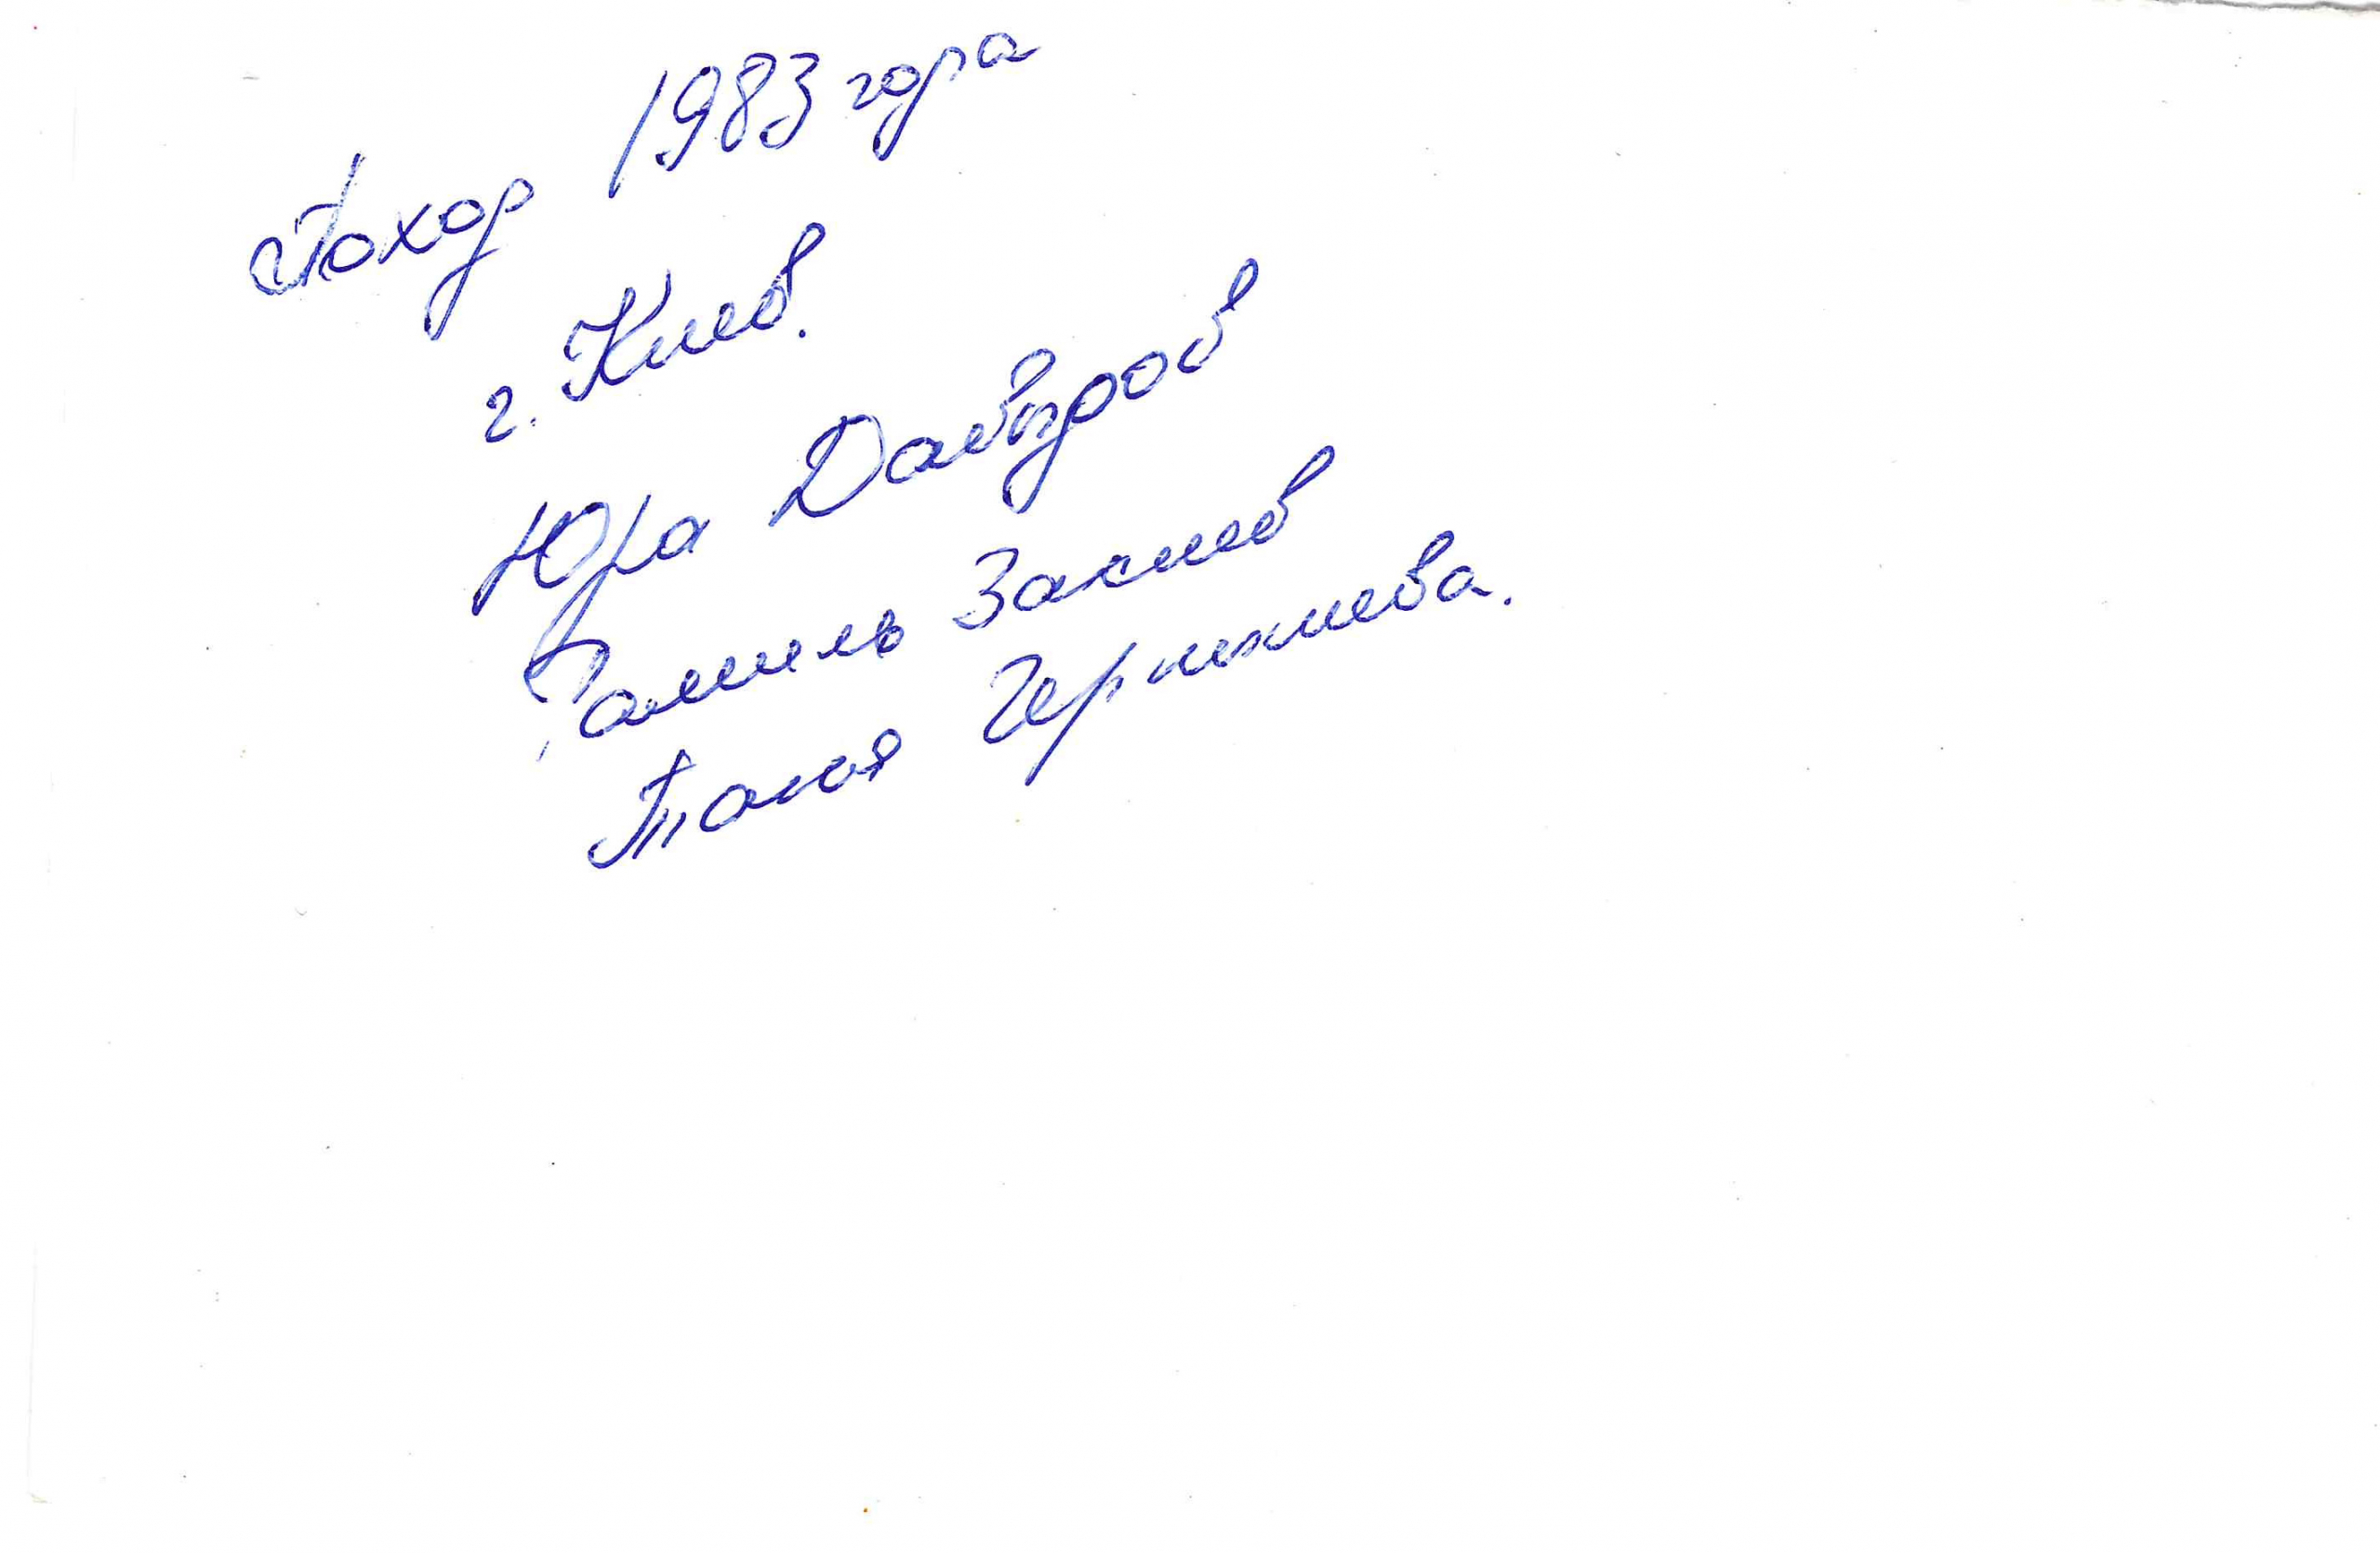 Поход 1983 года
г. Киев.
Юра Давыдов
Рамиль Закиев
Таня Черникиева.